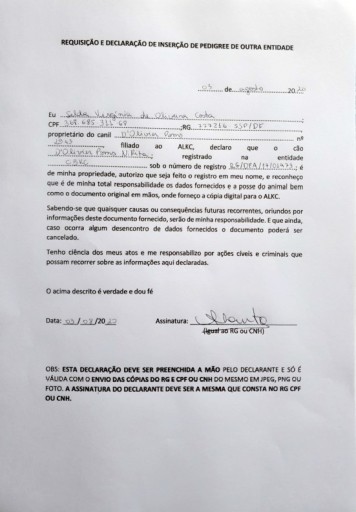 REQUISIÇÃO E DECLARAÇÃO DE INSERÇÃO DE PEDIGREE DE OUTRA ENTIDADE
03 de agosto 2020
Eu Selda Virgínia de Oliveira Costa
CPF ;RG SSP/DF
proprietário do canil D'Oliveira Poms nº
filiado ao ALKC, declaro que o cão
D'Oliveira Poms registrado na entidade
sob o número de registro ; é
de minha propriedade, autorizo que seja feito o registro em meu nome, e reconheço
que é de minha total responsabilidade os dados fornecidos e a posse do animal bem
como o documento original em mãos, onde forneço a cópia digital para o ALKC.
Sabendo-se que quaisquer causas ou consequências futuras recorrentes, oriundos por
informações deste documento fornecido, serão de minha responsabilidade. E que ainda,
caso ocorra algum desencontro de dados fornecidos o documento poderá ser
cancelado.
Tenho ciência dos meus atos e me responsabilizo por ações cíveis e criminais que
possam recorrer sobre as informações aqui declaradas.
O acima descrito é verdade e dou fé
Data: 03/08/2020 Assinatura:
(Igual ao RG ou CNH)
OBS: ESTA DECLARAÇÃO DEVE SER PREENCHIDA A MÃO PELO DECLARANTE E SÓ É
VÁLIDA COM O ENVIO DAS CÓPIAS DO RG E CPF OU CNH DO MESMO EM JPEG, PNG OU
FOTO. A ASSINATURA DO DECLARANTE DEVE SER A MESMA QUE CONSTA NO RG CPF
OU CNH.